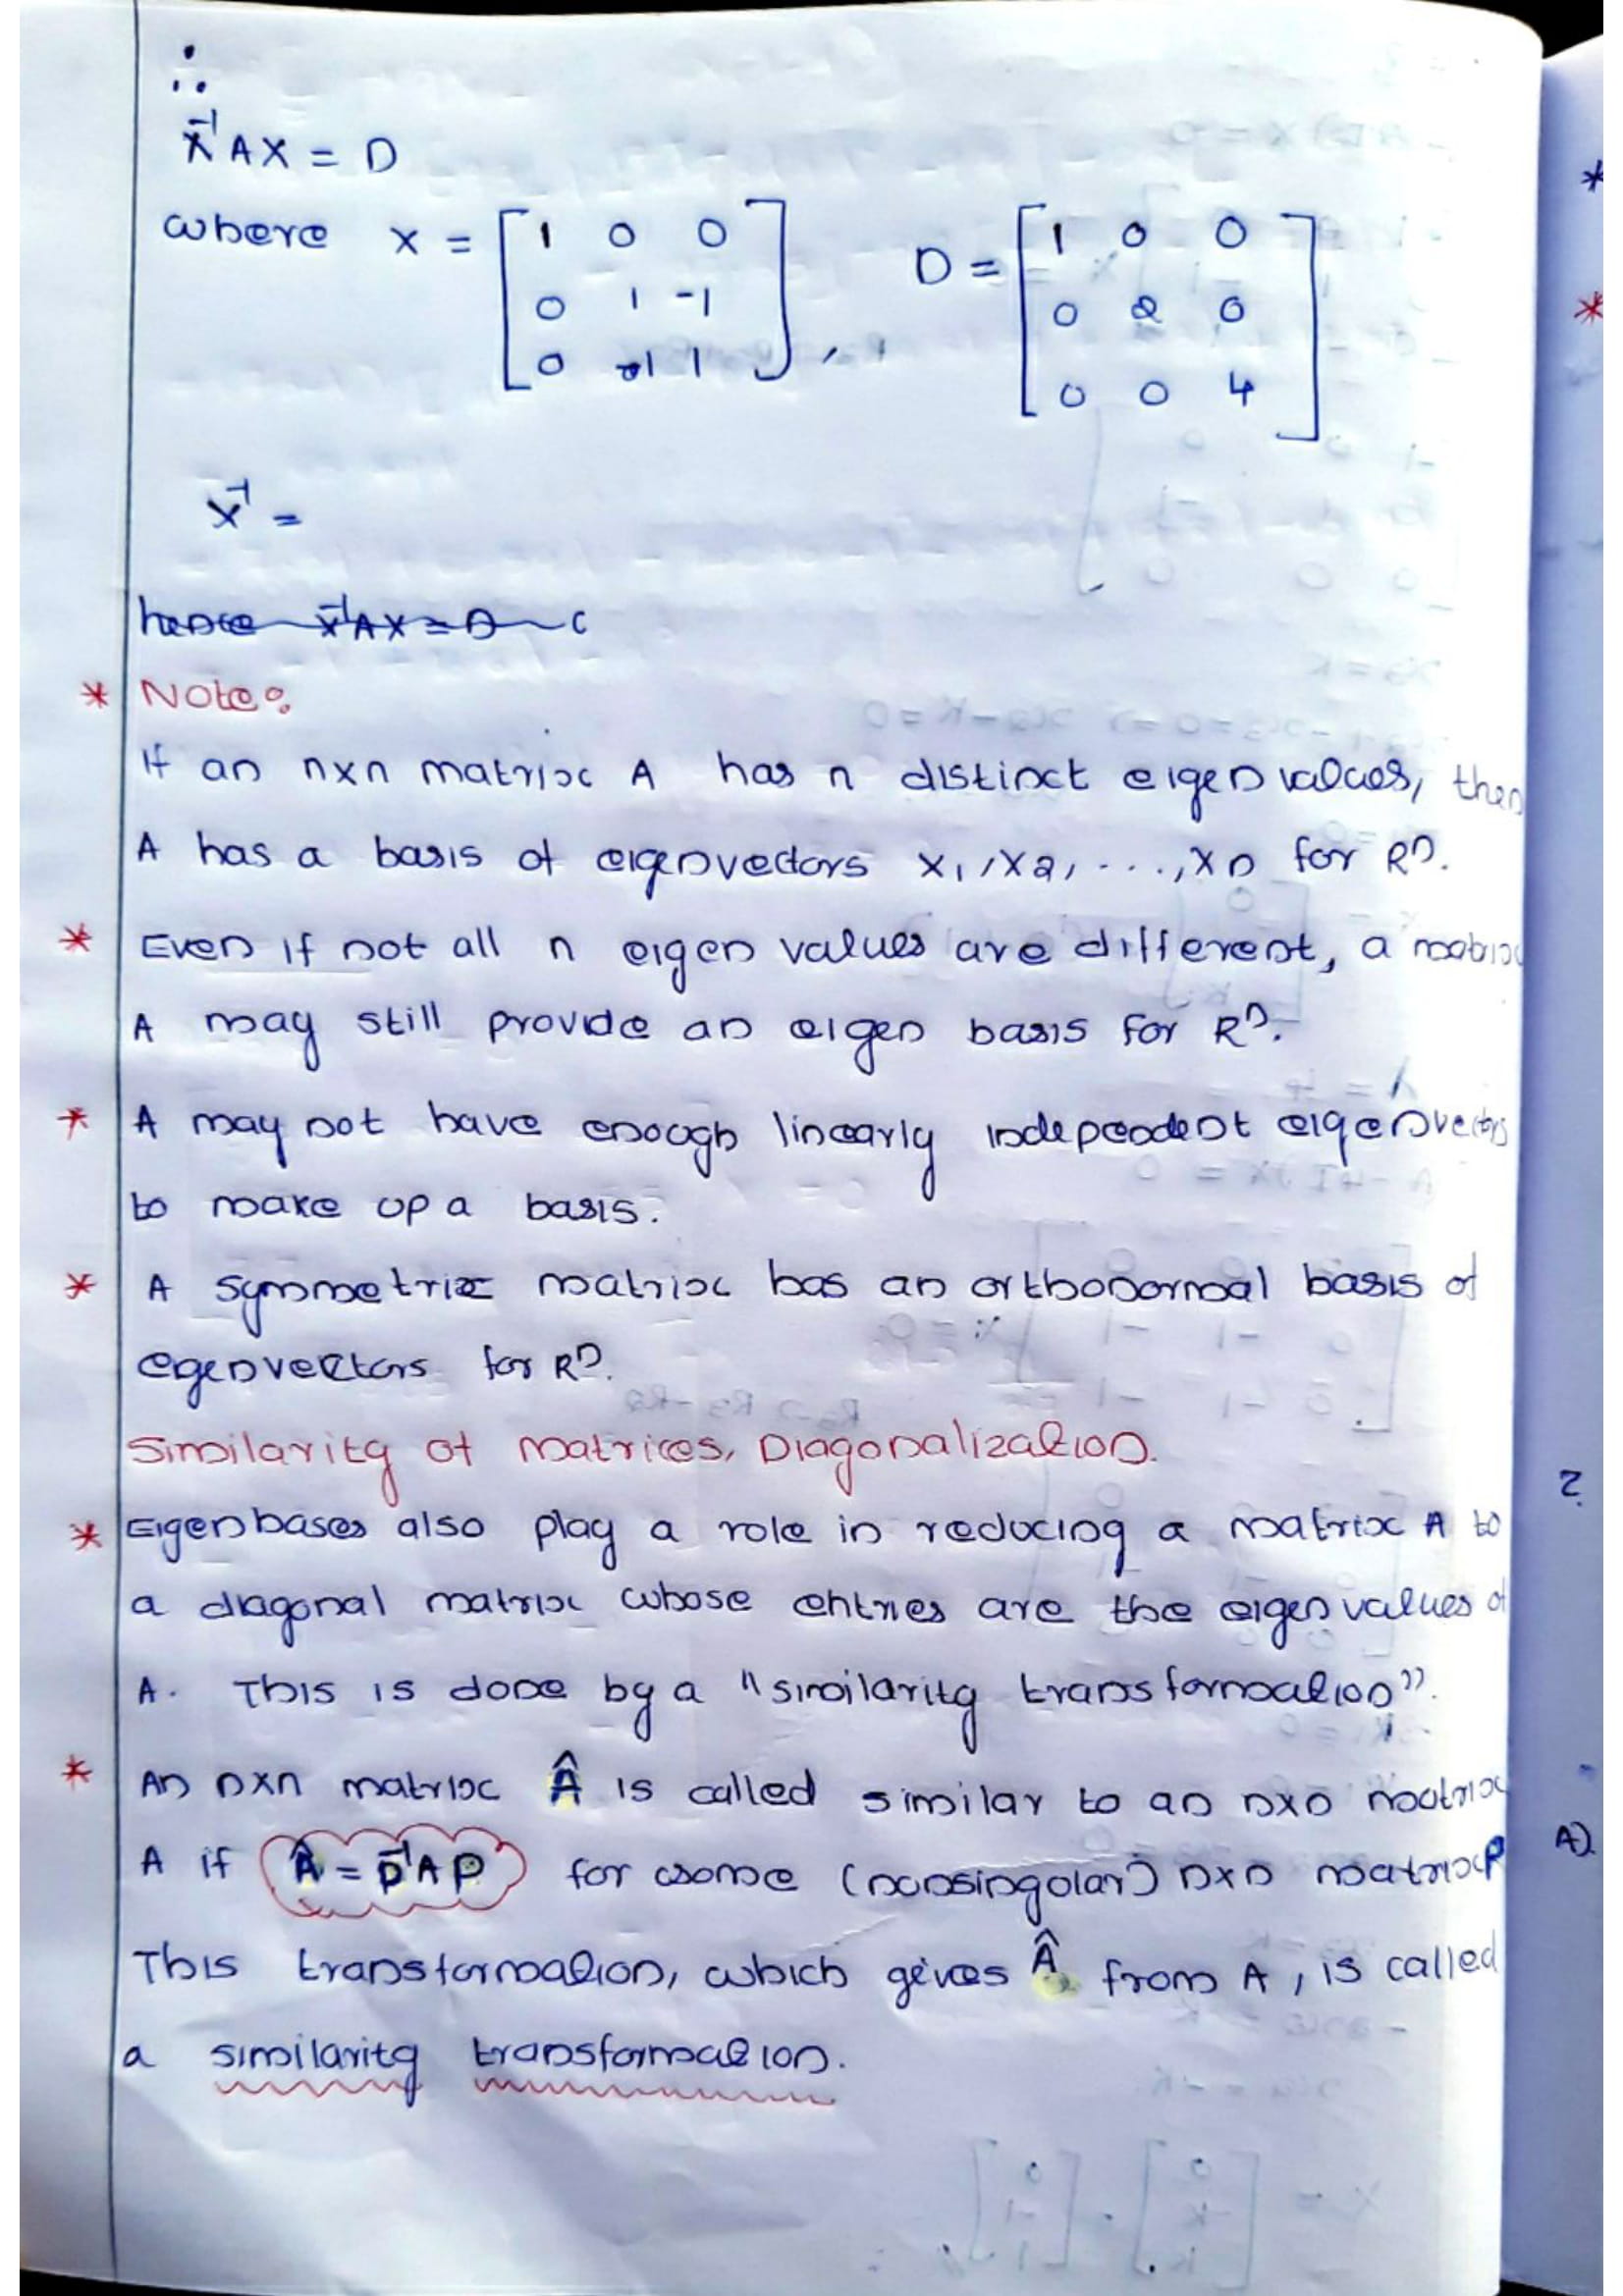 ∴
X⁻¹AX = D
where X = [1 0 0
0 1 -1
0 1 1], D = [1 0 0
0 2 0
0 0 4]
X⁻¹ =
hence X⁻¹AX = D C
* Note:
If an nxn matrix A has n distinct eigen values, then
A has a basis of eigenvectors X₁, X₂, ..., Xn for Rⁿ.
* Even if not all n eigen values are different, a matrix
A may still provide an eigen basis for Rⁿ.
* A may not have enough linearly independent eigenvectors
to make up a basis.
* A symmetric matrix has an orthonormal basis of
egenvectors for Rⁿ.
Similarity of matrices, Diagonalization.
* Eigenbases also play a role in reducing a matrix A to
a diagonal matrix whose entries are the eigen values of
A. This is done by a "similarity transformation".
* An nxn matrix Â is called similar to an nxn matrix
A if Â = P⁻¹AP for some (nonsingular) nxn matrix P
This transformation, which gives Â from A, is called
a similarity transformation.
*
*
2
A)